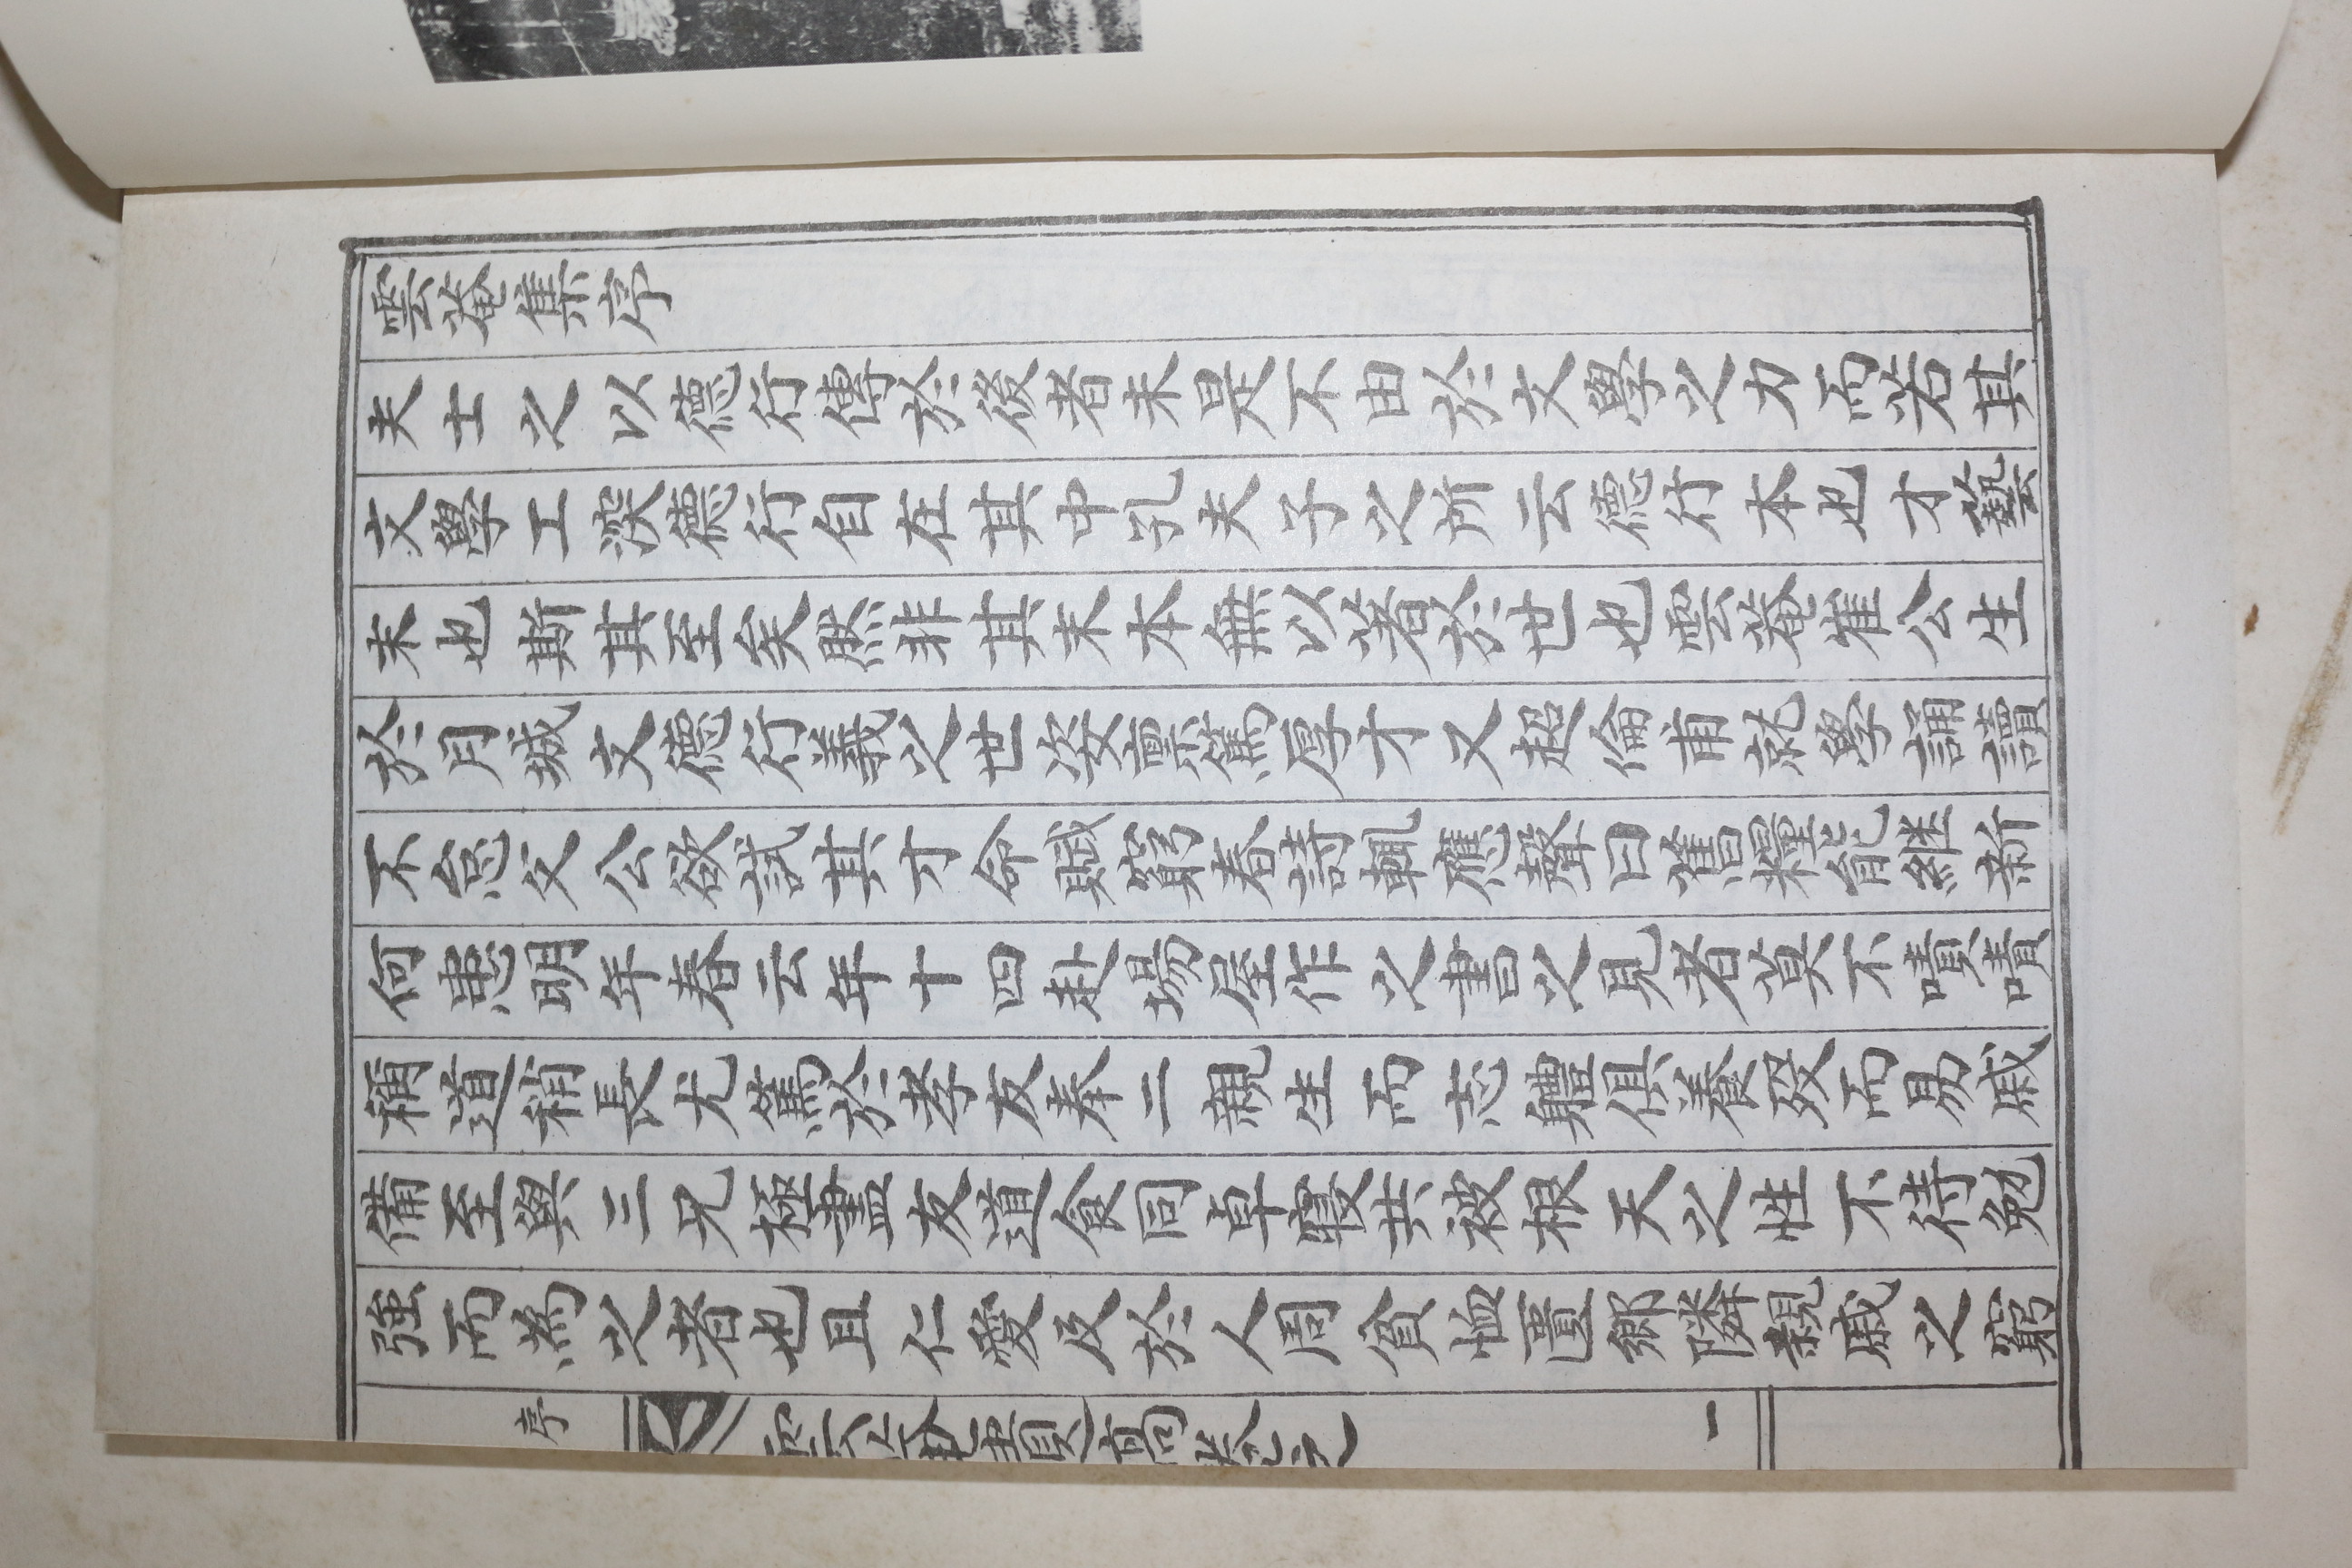 雲菴集序
夫士之以德行傳於後者未是不由於文學之力而若其
文學工深德行自在其中孔夫子之所云德行本也才藝
末也斯其至矣然非其末本無以著於世也雲菴崔公生
於月城文德行義之世姿禀篤厚才又超倫甫就學誦讀
不怠父公欲試其才命賦窮春詩輒應聲曰舊糧能継新
何患明年春云年十四赴場屋作之書之見者莫不嘖嘖
稱道稍長尤篤於孝友奉二親生而志體俱養歿而易戚
備至與三兄極盡友道食同卓寢共被根天之性不待勉
強而為之者也且仁愛及於人周貧恤匱鄉隣親戚之窮
序 雲菴遺稿卷之 一